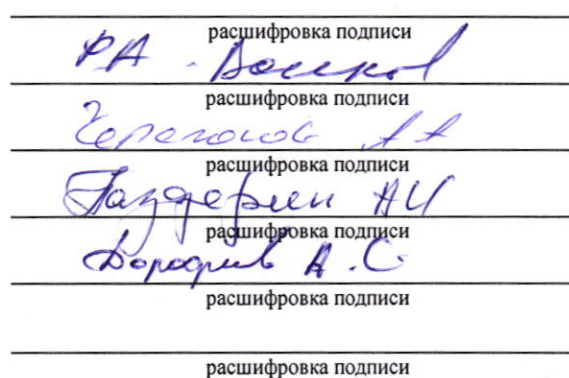 расшифровка подписи
Р.А.
расшифровка подписи
А А
расшифровка подписи
Паздерин АИ
расшифровка подписи
А.С.
расшифровка подписи
расшифровка подписи